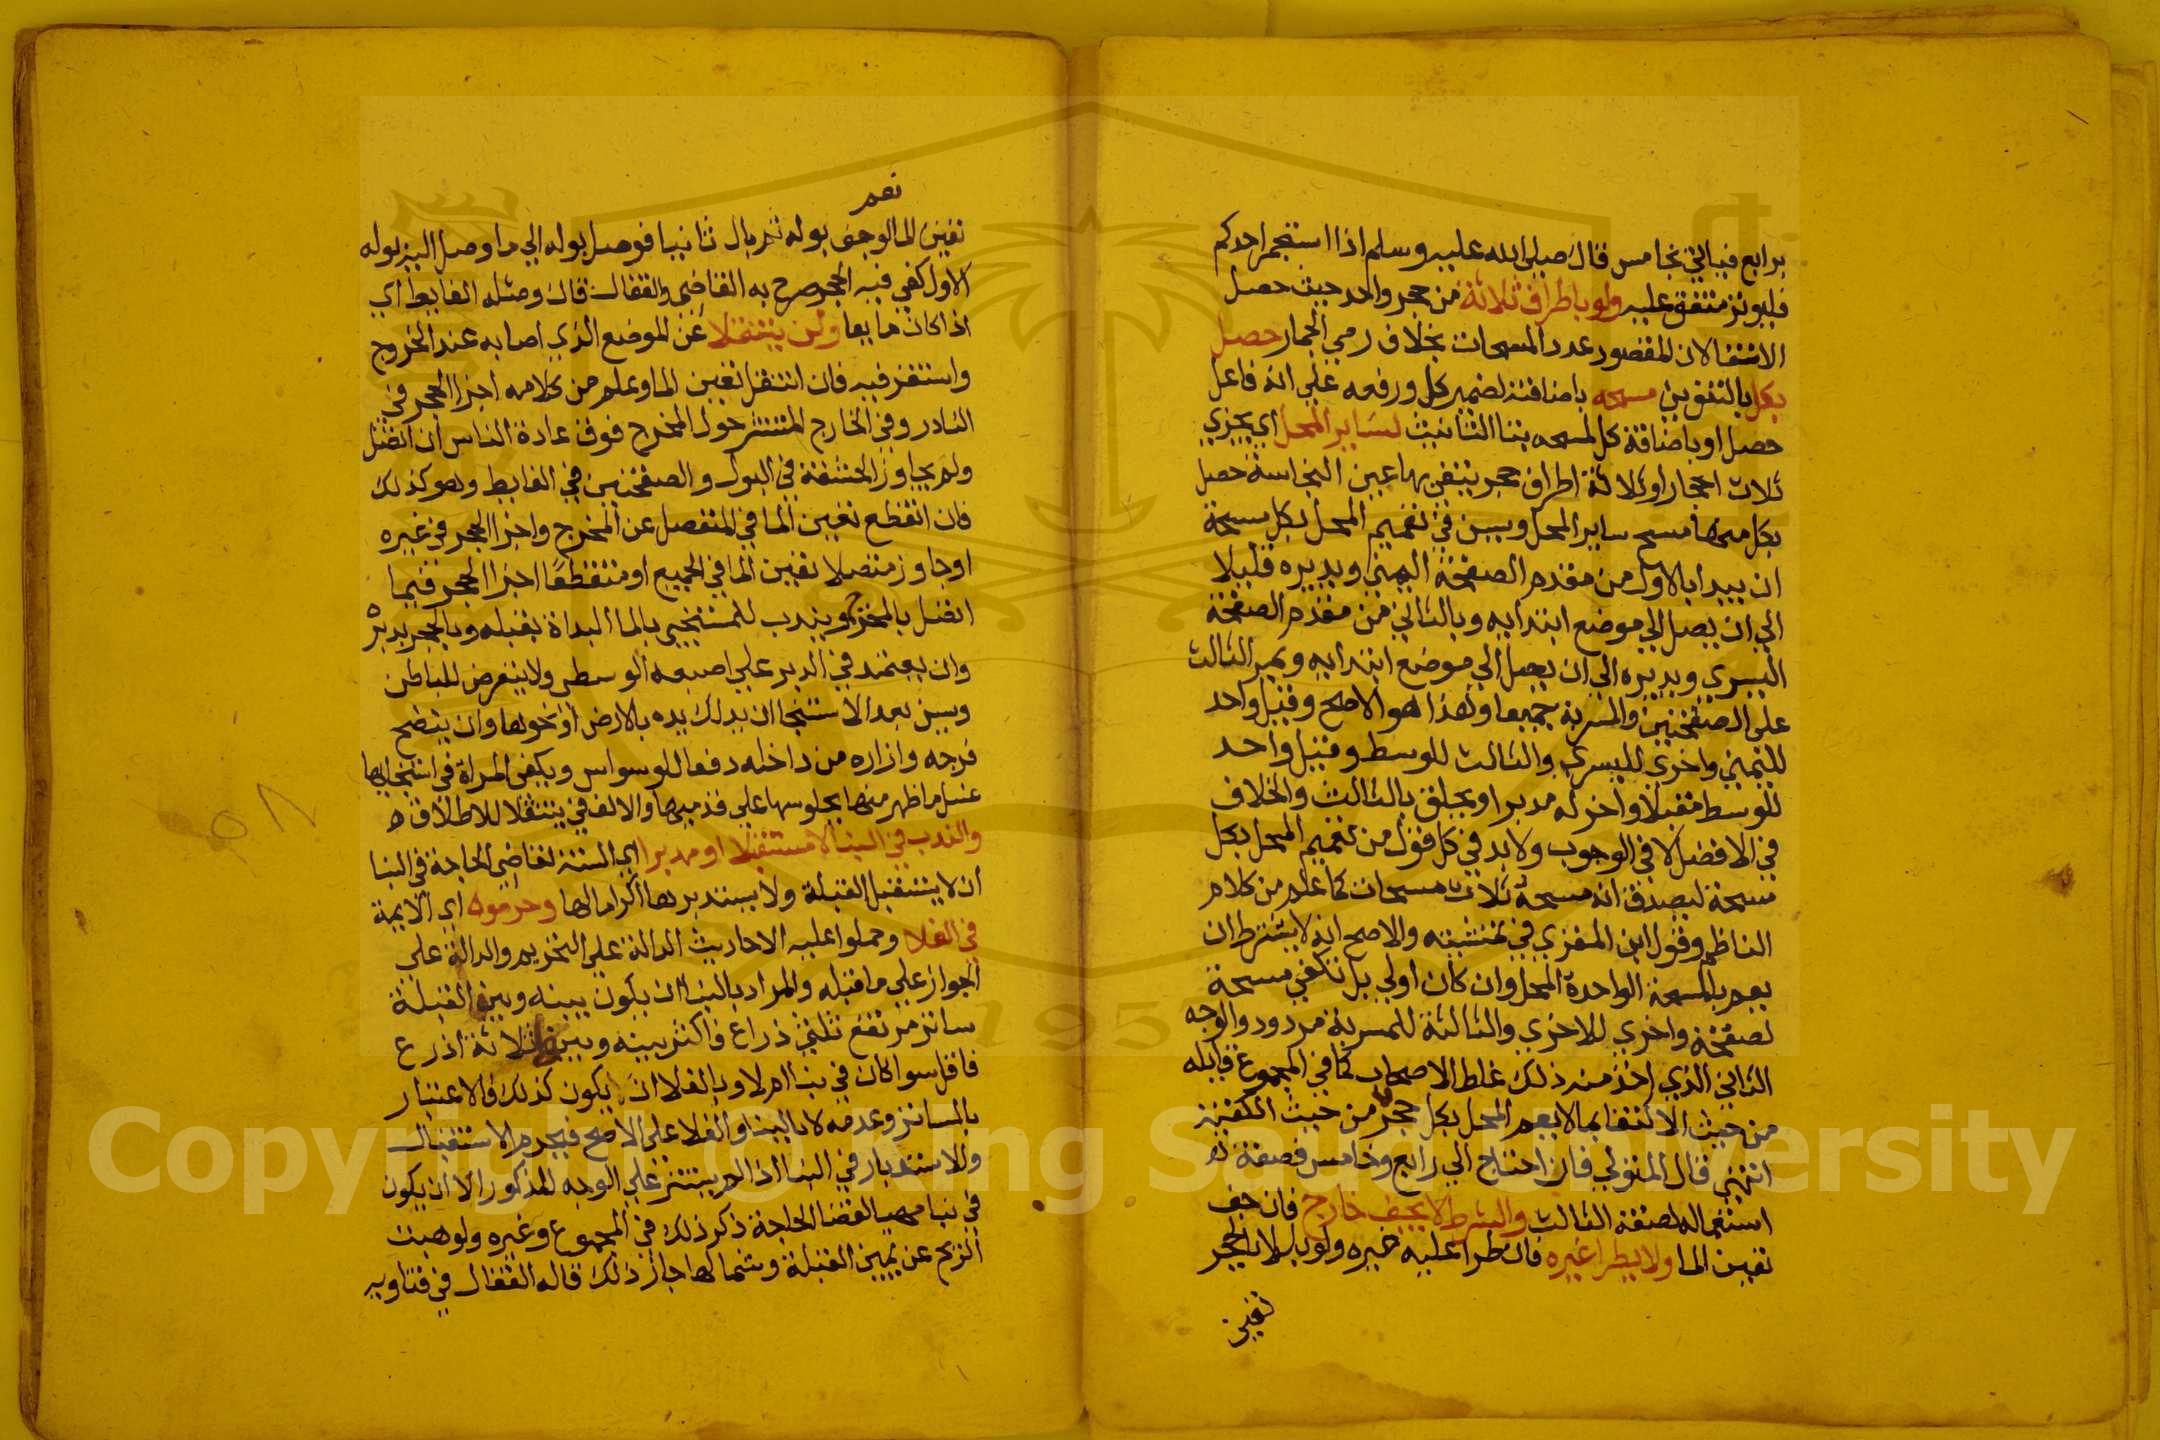 برابع فياتي بخامس قال صلى الله عليه وسلم اذا استجمر احدكم
فليوتر متفق عليه ولو باطراف ثلاثة من حجر واحد حيث حصل
الانقا لان المقصود عدد المسحات بخلاف رمي الجمار حصل
بكل بالتنوين مسحه باضافته لضمير كل ورفعه علي انه فاعل
حصل او باضافة كل لمسحه بتا التانيث لساير المحل اي يجزي
ثلاث احجار او ثلاثة اطراف حجر ينقي بها عين النجاسة حصل
بكل منها مسح ساير المحل ويسن في تعميم المحل بكل مسحة
ان يبدا بالاول من مقدم الصفحة اليمني ويديره قليلا
الي ان يصل الي موضع ابتدايه وبالثاني من مقدم الصفحة
اليسري ويديره الي ان يصل الي موضع ابتدايه ويمر الثالث
علي الصفحتين والمسربة جميعا وهذا هو الاصح وقيل واحد
لليمني واخري لليسري والثالث للوسط وقيل واحد
للوسط مقبلا واخر له مدبرا ويحلق بالثالث والخلاف
في الافضل لا في الوجوب ولابد في كل قول من تعميم المحل بكل
مسحة ليصدق انه مسحه ثلاث مسحات كما علم من كلام
الناظم وقول ابن المقري في تمشيته والاصح انه لا يشترط ان
يعم بالمسحة الواحدة المحل وان كان اولي بل تكفي مسحة
لصفحة واخري للاخري والثالثة للمسربة مردود والوجه
الثاني الذي اخذ منه ذلك غلط الاصحاب كما في المجموع قايله
من حيث الاكتفا بما لا يعم المحل بكل حجر من حيث الكيفية
انتهي قال المتولي فان احتاج الي رابع وخامس فصفة
استعماله لصفة الثالث والشرط لا يجف خارج فان جف
تعين الما ولا يطرا غيره فان طرا عليه غيره ولو بللا بالحجر
تعين
نعم
تعين الما لو جف بوله ثم بال ثانيا فوصل بوله الي ما وصل اليه بوله
الاول كفي فيه الحجر صرح به القاضي والقفال قال ومثله الغايط اي
اذا كان مايعا ولن ينتقلا عن الموضع الذي اصابه عند الخروج
واستقر فيه فان انتقل تعين الما وعلم من كلامه اجزا الحجر في
النادر وفي الخارج المنتشر حول المخرج فوق عادة الناس ان اتصل
ولم يجاوز الحشفة في البول والصفحتين في الغايط وهو كذلك
فان انقطع تعين الما في المنفصل عن المخرج واجزا الحجر في غيره
او جاوز متصلا تعين الما في الجميع او منقطعا اجزا الحجر فيما
اتصل بالمخرج ويندب للمستنجي بالما البداة بقبله وبالحجر بدبره
وان يعتمد في الدبر علي اصبعه الوسطي ولا يتعرض للباطن
ويسن بعد الاستنجا ان يدلك يده بالارض او نحوها وان ينضح
فرجه وازاره من داخله دفعا للوسواس ويكفي المراة في استنجايها
غسل ما ظهر منها بجلوسها علي قدميها والالف في ينتقلا للاطلاق ه
والندب في البنا لا مستقبلا او مدبرا اي السنة لقاضي الحاجة في البنا
ان لا يستقبل القبلة ولا يستدبرها اكراما لها وحرموه اي الايمة
في الفلا وحملوا عليه الاحاديث الدالة علي التحريم والدالة علي
الجواز علي ما قبله والمراد بالبنا ان يكون بينه وبين القبلة
ساتر مرتفع ثلثي ذراع فاكثر بينه وبينه ثلاثة اذرع
فاقل سوا كان في بنا ام لا وبالفلا ان لا يكون كذلك والاعتبار
بالساتر وعدمه لا بالبنا والفلا علي الاصح فيحرم الاستقبال
والاستدبار في البنا اذا لم يستتر علي الوجه المذكور الا ان يكون
في بنا مهيا لقضا الحاجة ذكر ذلك في المجموع وغيره ولو هبت
الريح عن يمين القبلة وشمالها جاز ذلك قاله القفال في فتاويه
Copyright © King Saud University
1957